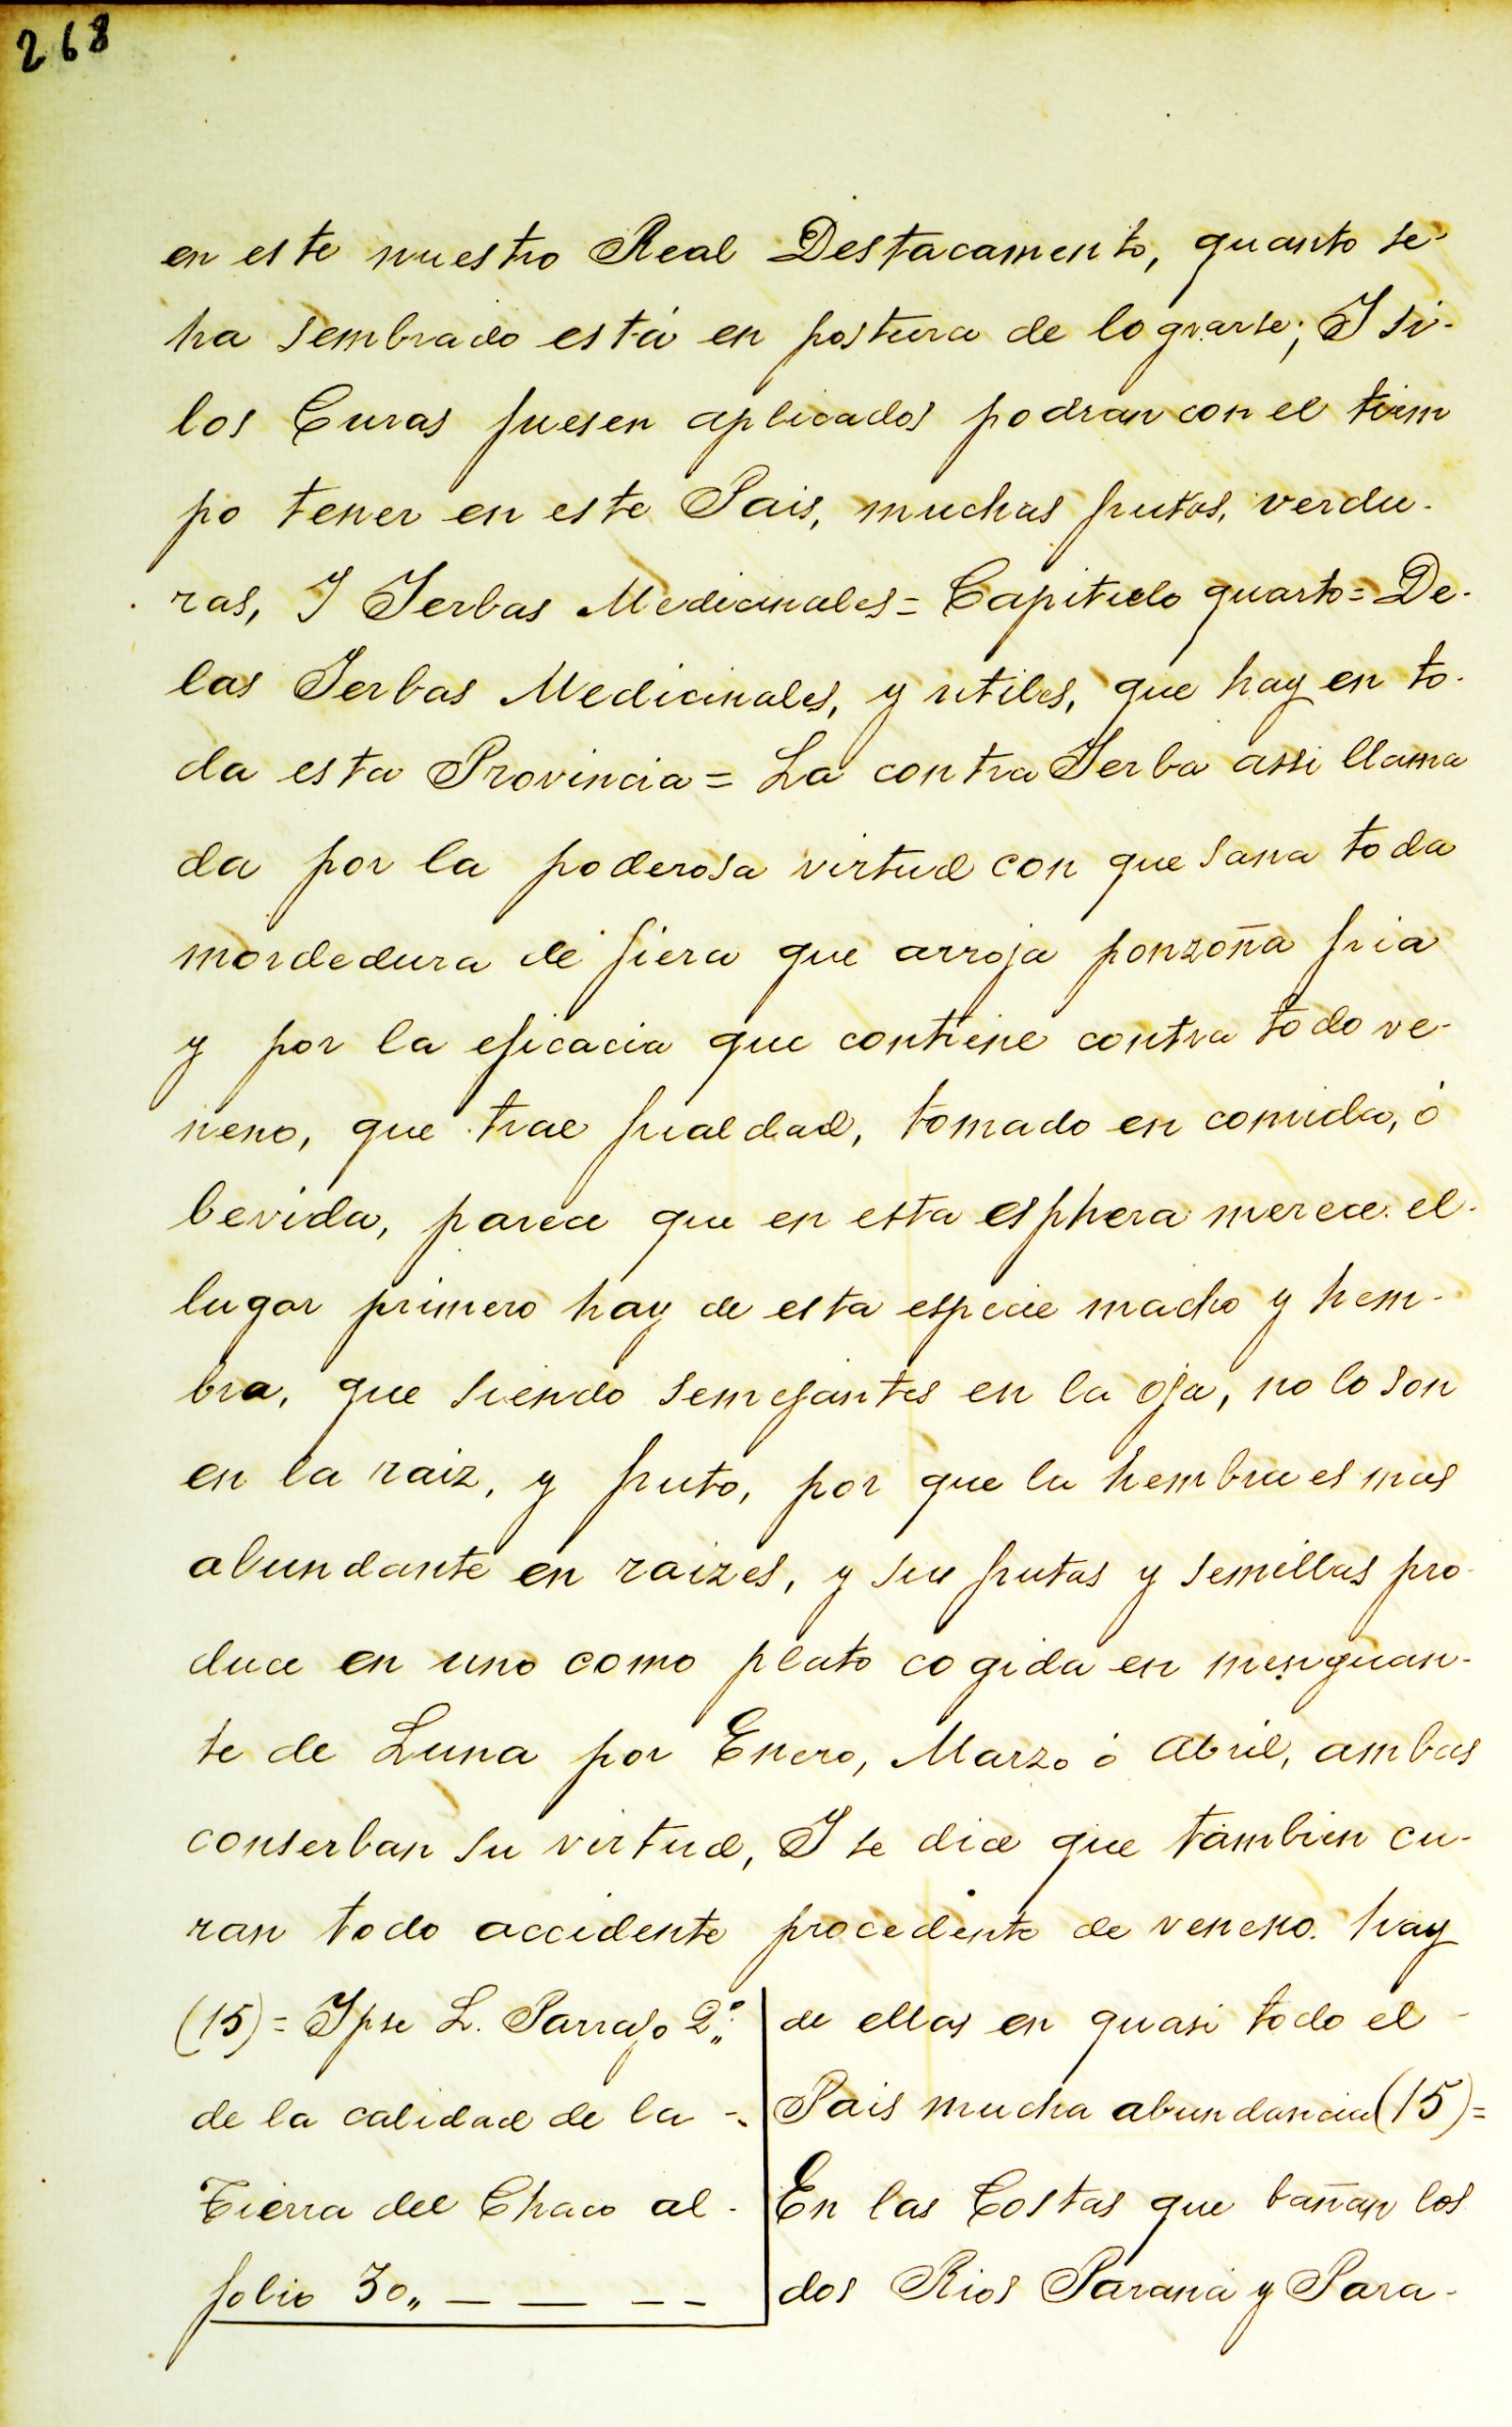 268
en este nuestro Real Destacamento, quanto se-
ha sembrado está en postura de lograrse; I si-
los Curas fuesen aplicados podran con el tiem
po tener en este Pais, muchas frutas, verdu-
ras, I Ierbas Medicinales = Capitulo quarto = De-
las Ierbas Medicinales, y utiles, que hay en to-
da esta Provincia = La contra Ierba assi llama
da por la poderosa virtud con que sana toda
mordedura de fiera que arroja ponzoña fria
y por la eficacia que contiene contra todo ve-
neno, que trae frialdad, tomado en comida, ó
bevida, parece que en esta esphera merece el-
lugar primero hay de esta especie macho y hem-
bra, que siendo semejantes en la oja, no lo son
en la raiz, y fruto, por que la hembra es mas
abundante en raizes, y su frutas y semillas pro-
duce en uno como plato cogida en menguan-
te de Luna por Enero, Marzo ó Abril, ambas
conserban su virtud, I se dice que tambien cu-
ran todo accidente procedente de veneno. hay
de ellas en quasi todo el -
Pais mucha abundancia (15) =
En las Costas que bañan los
dos Rios Paraná y Para-
(15) = Ipse L. Parrafo 2.º„
de la calidad de la -
Tierra del Chaco al -
folio 30„ — — — —